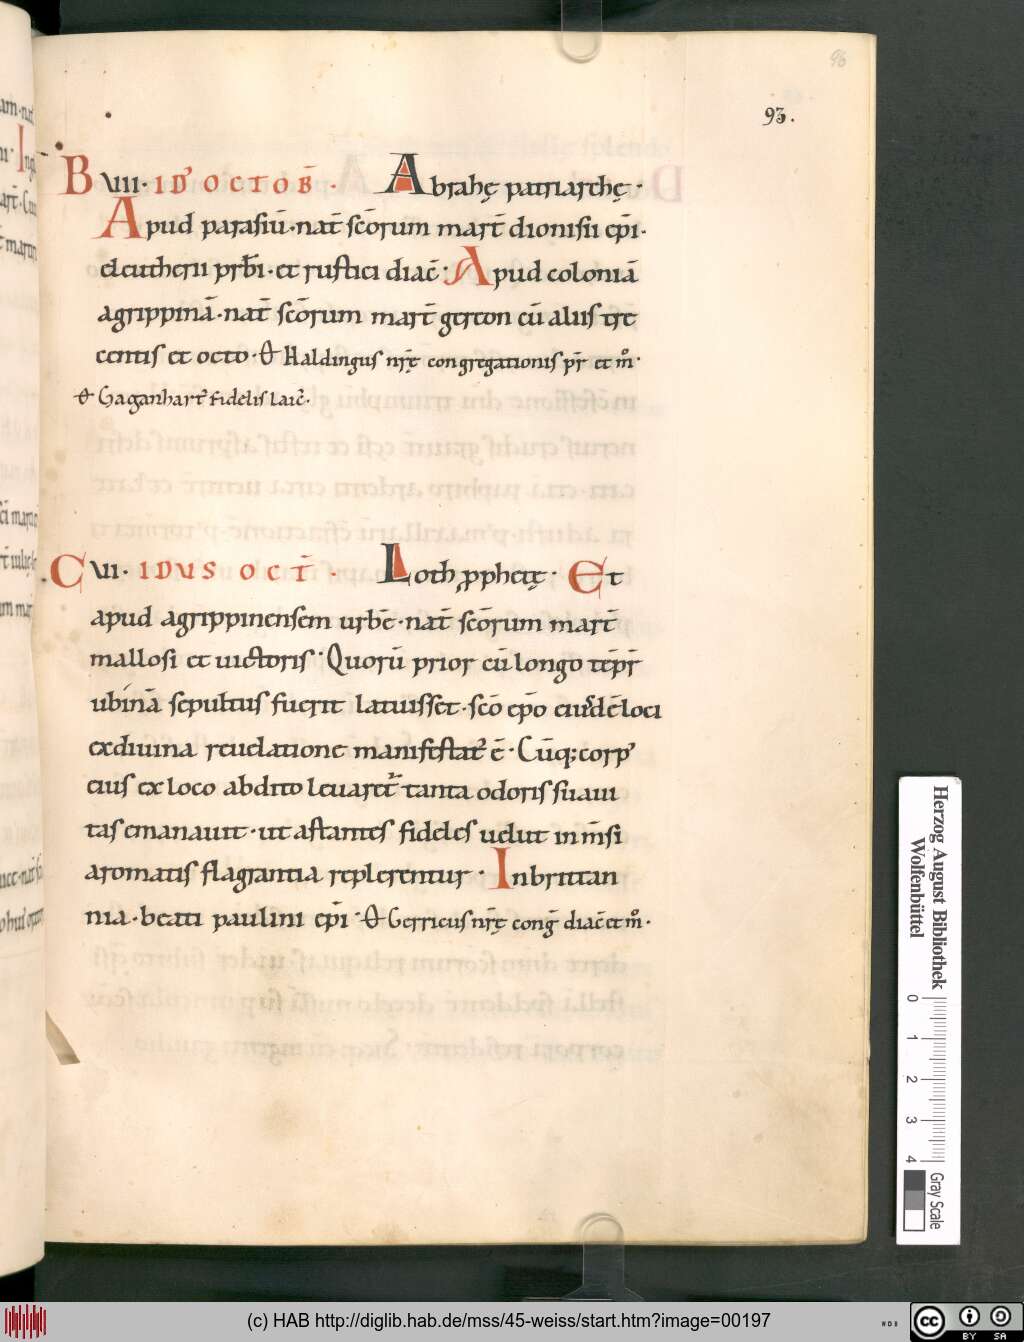 96
93.
B VIII · IDꝰ OCTOB̄ · Abrahę patriarchę ·
Apud parasiū · nat̄ scōrum mart̄ dionisii ep̄i ·
eleutherii prb̄i · et rustici diac̄ · Apud coloniā
agrippinā · nat̄ scōrum mart̄ gereon cū aliis tre
centis et octo · & Haldingus nr̄ę congregationis pr̄ et m̊ ·
& Gaganhart fidelis laic̄ ·
C VII · IDUS OCT̄ · Loth ꝓphetę · Et
apud agrippinensem urbē · nat̄ scōrum mart̄
mallosi et uictoris · Quorū prior cū longo tēpr̄
ubinā sepultus fuerit latuisset · scō ep̄o eiusdē loci
ex diuina reuelatione manifestat᷒ ē · Cūq; corpꝰ
eius ex loco abdito leuaret᷒ tanta odoris suaui
tas emanauit · ut astantes fideles uelut inm̄si
aromatis flagrantia replerentur · In brittan
nia · beati paulini ep̄i · & Gerricus nr̄ę cong̅ diac̄ et m̊ ·
Herzog August Bibliothek
Wolfenbüttel
0 1 2 3 4
Gray Scale
(c) HAB http://diglib.hab.de/mss/45-weiss/start.htm?image=00197
WDB
cc
BY SA